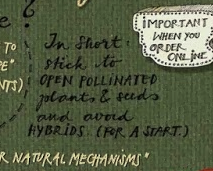 ?
e?
IMPORTANT
WHEN YOU
ORDER
ONLINE
TO
PE"
NTS)
In Short:
stick to
OPEN POLLINATED
plants & seeds
and avoid
HYBRIDS. (FOR A START.)
R NATURAL MECHANISMS"